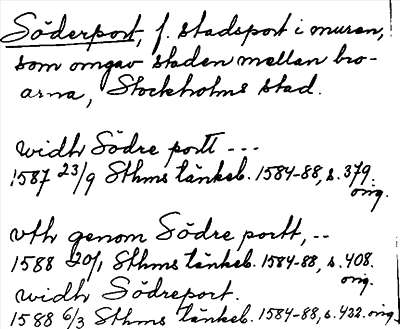 Söderport, f. stadsport i muren,
som omgav staden mellan bro-
arna, Stockholms stad.
widh Södre portt ---
1587 23/9 Sthms tänkeb. 1584-88, s. 379.
orig.
vth genom Södre portt, --
1588 20/1 Sthms tänkeb. 1584-88, s. 408.
orig.
widh Södreport.
1588 6/3 Sthms tänkeb. 1584-88, s. 422. orig.